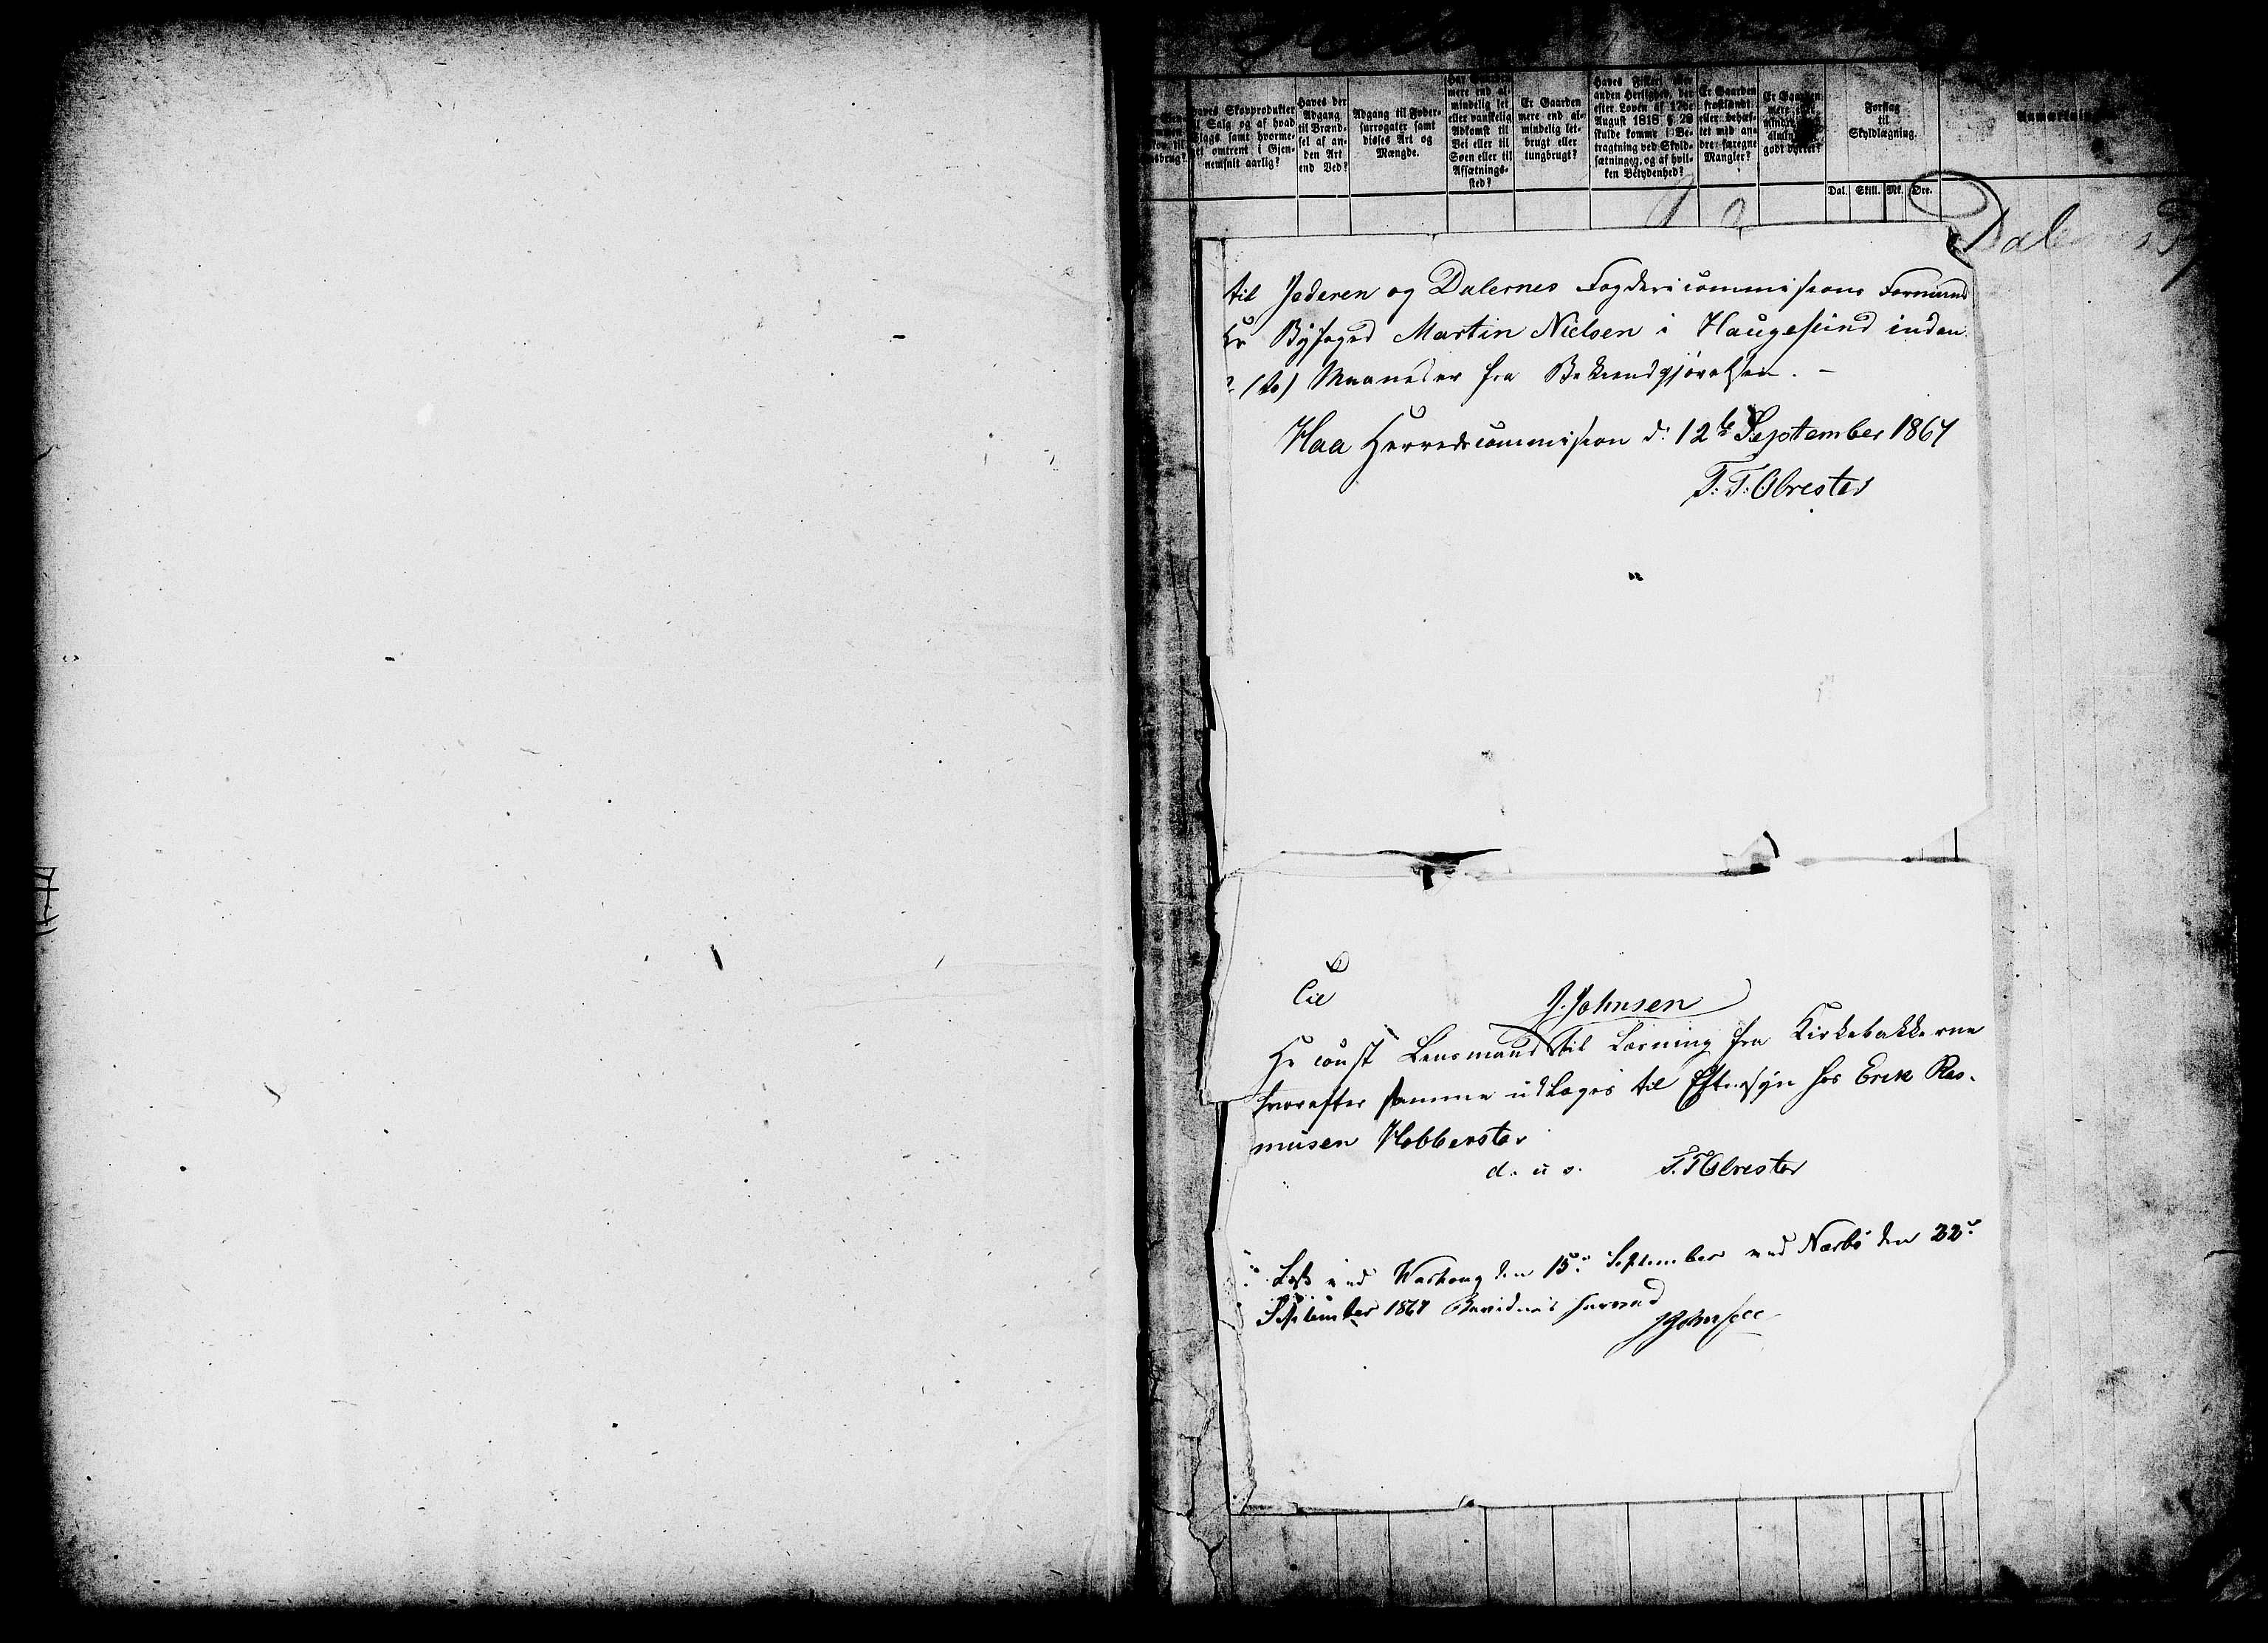 Haves Skovprodukter
til Salg og af hvad
Slags samt hvorme-
get omtrent i Gjen-
nemsnit aarlig?
Haves der
Adgang
til Brænd-
sel af an-
den Art
end Ved?
Adgang til Foder-
surrogater samt
disses Art og
Mængde.
Har Gaarden
mere end al-
mindelig let
eller vanskelig
Adkomst til
Vei eller til
Søen eller til
Afsætnings-
sted?
Er Gaarden
mere end al-
mindelig let-
brugt eller
tungbrugt?
Haves Fiskeri eller
anden Herlighed, der
efter Loven af 17de
August 1818 § 28
skulde komme i Be-
tragtning ved Skyld-
sætningen, og af hvil-
ken Betydenhed?
Er Gaarden
frostlændt
eller behæf-
tet med an-
dre særegne
Mangler?
Er Gaarden
mere eller
mindre end
almindelig
godt dyrket?
Forslag
til
Skyldlægning.
Dal. Skill. Mk. Øre.
Anmærkninger.
Dalernes
til Jæderen og Dalernes Fogdericommissions Formand
Hr Byfoged Martin Nielsen i Haugesund inden
2 (to) Maaneder fra Bekjendtgjørelsen. –
Haa Herredscommission d. 12te September 1867
T. T. Obrestad
Til
J. Johnsen
Hr const Lensmand til Læsning fra Kirkebakkerne
hvorefter samme udlægges til Eftersyn hos Erik Ras-
musen Hobberstad
d. u. s. T. T Obrestad
Læst ved Varhoug den 15de September ved Nærbø den 22de
September 1867 Bevidnes herved
J Johnsen